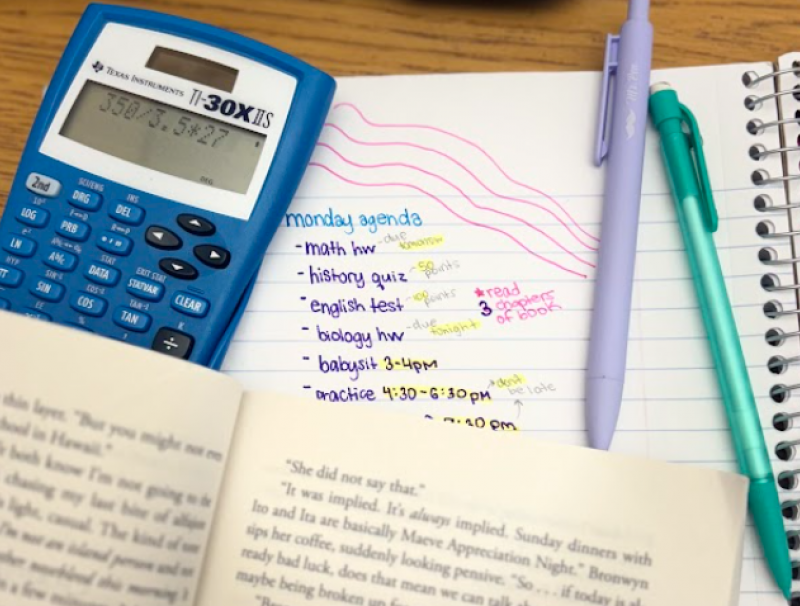 TEXAS INSTRUMENTS
TI-30X IIS
350/3.5*27
DEG
2nd
DRG
DEL
INS
LOG
PRB
LN
A%
DATA
STATVAR
CLEAR
STAT
EXIT STAT
SIN
COS
TAN
monday agenda
- math hw - due tomorrow
- history quiz - 50 points
- english test - 100 points
- biology hw - due tonight
- babysit 3-4pm
- practice 4:30-6:30 pm → don't be late
*read
3 chapters
of book
thin layer. "But you might not
in Hawaii."
both know I'm not going to
chasing my last bite of
light, casual. The kind of
I'm not an island person and
this morning
in a few
"She did not say that."
"It was implied. It's always implied. Sunday dinners with
Ito and Ita are basically Maeve Appreciation Night." Bronwyn
sips her coffee, suddenly looking pensive. "So . . . if today is al
ready bad luck, does that mean we can talk
maybe being broken up